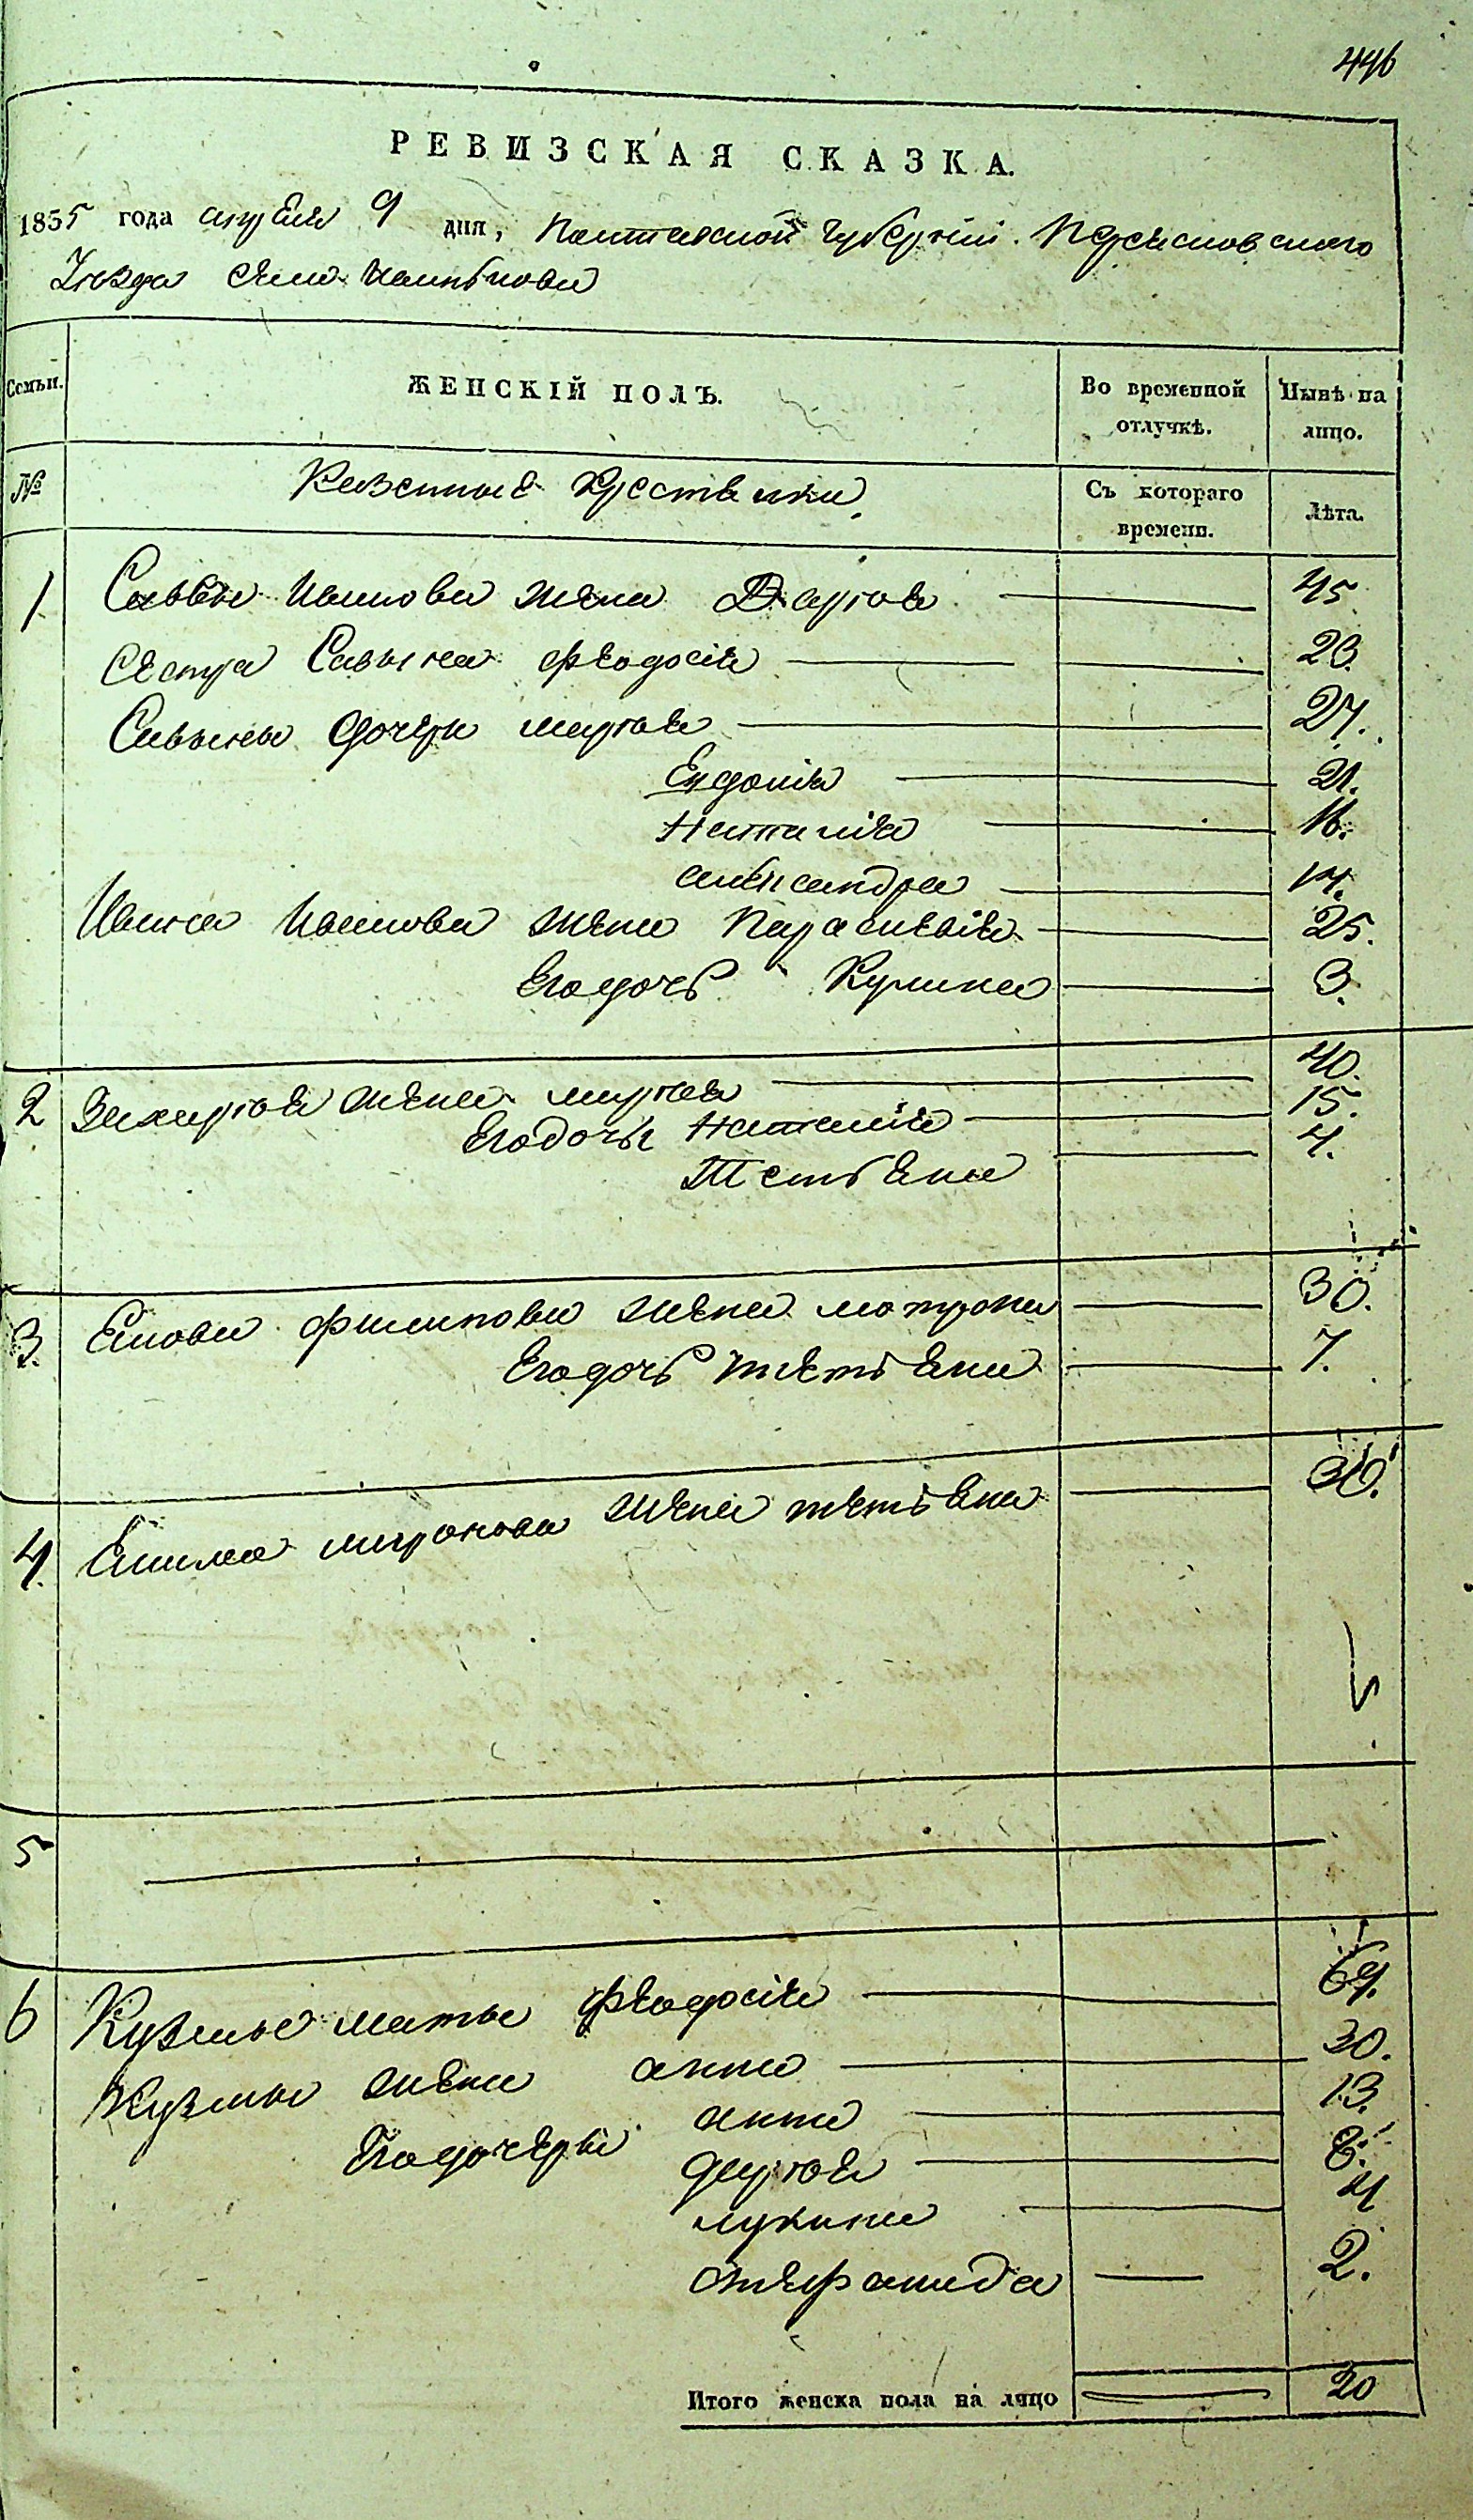 446
РЕВИЗСКАЯ СКАЗКА.
1835 года апреля 9 дня, Полтавской Губернии Переясловского
Уезда села
Семьи. ЖЕНСКІЙ ПОЛЪ. Во временной отлучкѣ. Нынѣ на лицо.
№ Казенные крестьянки Съ котораго времени. Лѣта.
1 Саввы Иванова жена Дария 45
Сестра Савына Феодосія 20.
Савыны дочери мария 27.
Евдокия 21.
Наталия 16.
александра 14.
Ивана Иванова жена Параскевия 25.
Его дочь Кулина 3.
2 Захария жена мария 40.
Его дочьи Наталия 15.
Тетьяна 4.
3. Филипова жена мотрона 30.
Его дочь тетьяна 7.
4. Екима миронова жена тетьяна 30.
5
6 Кузьмы мать Феодосія 69.
Кузьмы жена анна 30.
Его дочеры анна 13.
дария 8.
лукина 4
2.
Итого женска пола на лицо 20